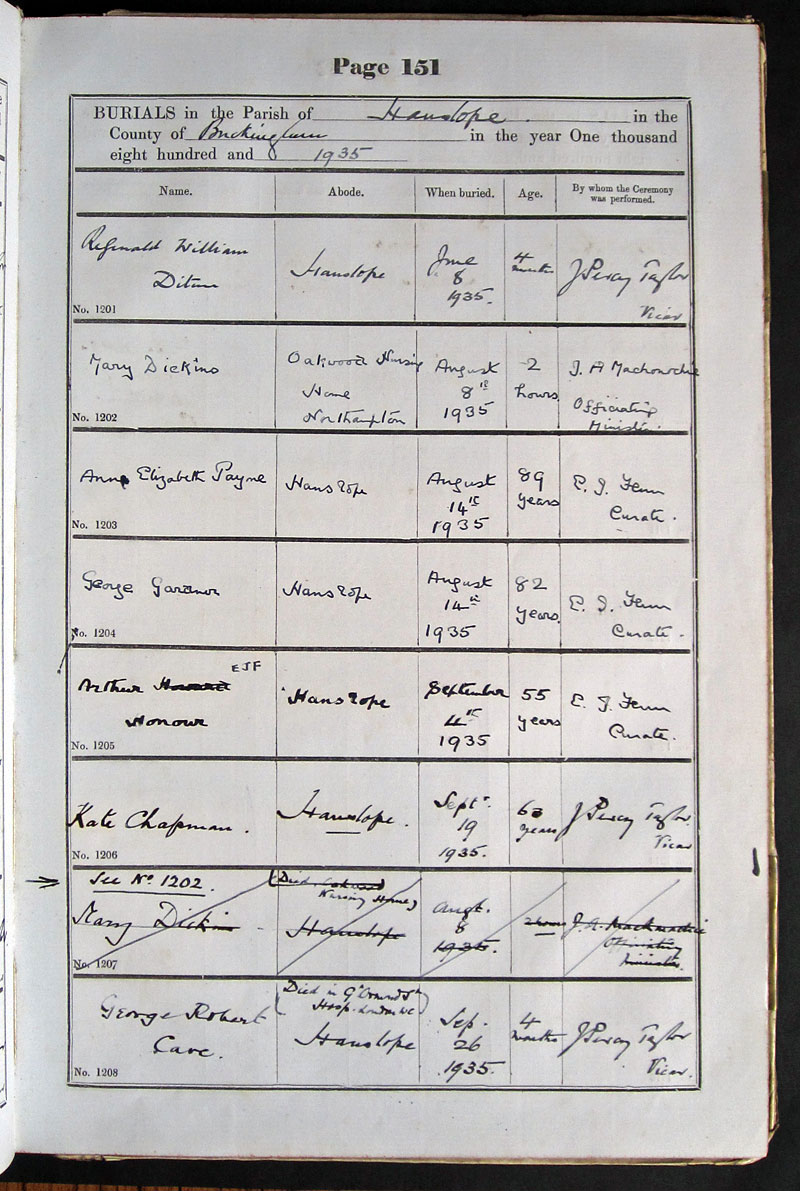 Page 151
BURIALS in the Parish of Hanslope in the
County of Buckingham in the year One thousand
eight hundred and 1935
Name. Abode. When buried. Age. By whom the Ceremony was performed.
Reginald William
Hanslope
June
8
1935.
4
months
J Percy Taylor
Vicar
No. 1201
Mary Dickins
Oakwood Nursing
Home
Northampton
August
8th
1935
2
hours
J. A
Officiating
Minister.
No. 1202
Anne Elizabeth Payne
Hanslope
August
14th
1935
89
years
E. J. Fenn
Curate.
No. 1203
George Gardner
Hanslope
August
14th
1935
82
years.
E. J. Fenn
Curate.
No. 1204
EJF
Arthur Howard
Honour
Hanslope
September
4th
1935
55
years
E. J. Fenn
Curate.
No. 1205
Kate Chapman.
Hanslope.
Septr.
19
1935.
63
years
J Percy Taylor.
Vicar
No. 1206
See No. 1202.
Mary Dickins
(Died Oakwood
Nursing Home)
Hanslope
Augt.
8
1935.
2 hours
J. A.
Officiating
Minister.
No. 1207
George Robert
Cave.
(Died in Gt Ormond St
Hosp. London WC)
Hanslope
Sep.
26
1935.
4
months
J Percy Taylor
Vicar.
No. 1208